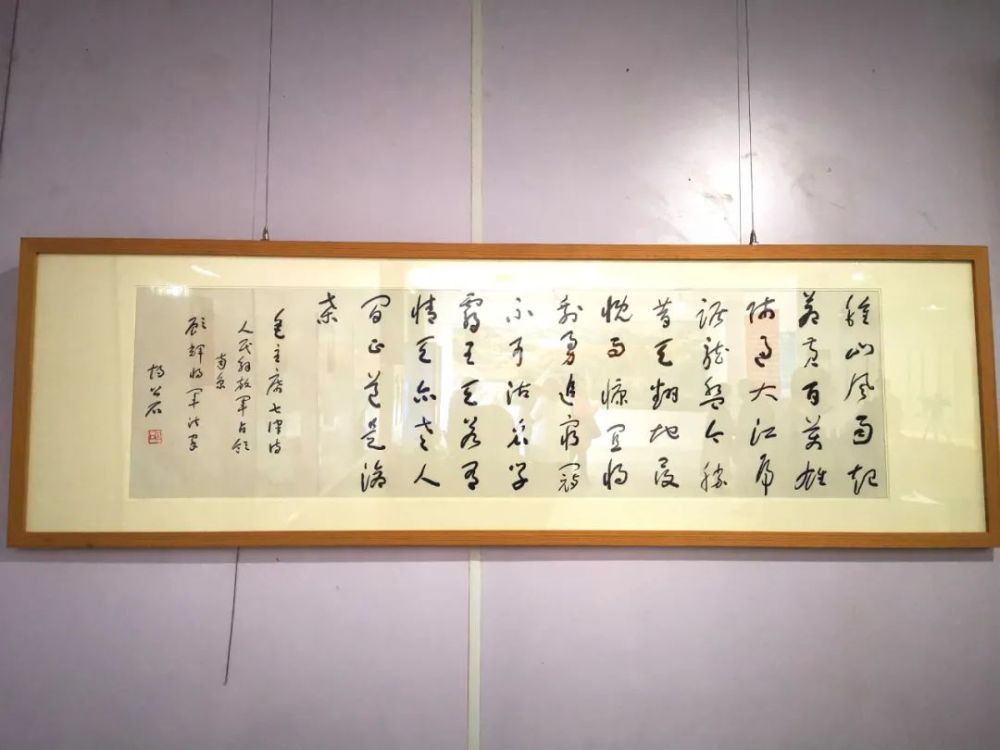 鍾山风雨起
苍黄百万雄
师过大江虎
踞龙盘今胜
昔天翻地覆
慨而慷宜将
剩勇追窮寇
不可沽名学
霸王天若有
情天亦老人
间正道是沧
桑
毛主席七律诗
人民解放军占领
南京
顾辉将军法家